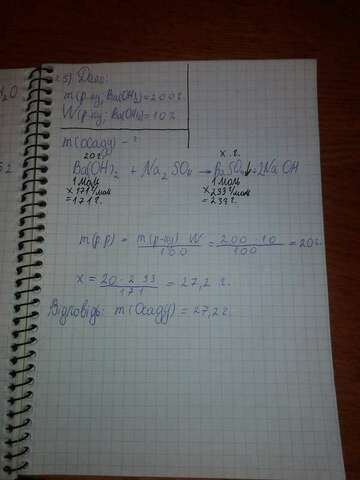 25) Дано:
m(р-ну, Ba(OH)₂)=200г.
W(р-ну, Ba(OH)₂)=10%
m(осаду) - ?
20г. x г.
Ba(OH)₂ + Na₂SO₄ → BaSO₄↓+2NaOH
1 моль 1 моль
x 171 г/моль x 233 г/моль
= 171 г. = 233 г.
m(р.р) = m(р-ну) · W / 100 = 200 · 10 / 100 = 20г.
x = 20 · 233 / 171 = 27,2 г.
Відповідь: m(Осаду) = 27,2г.